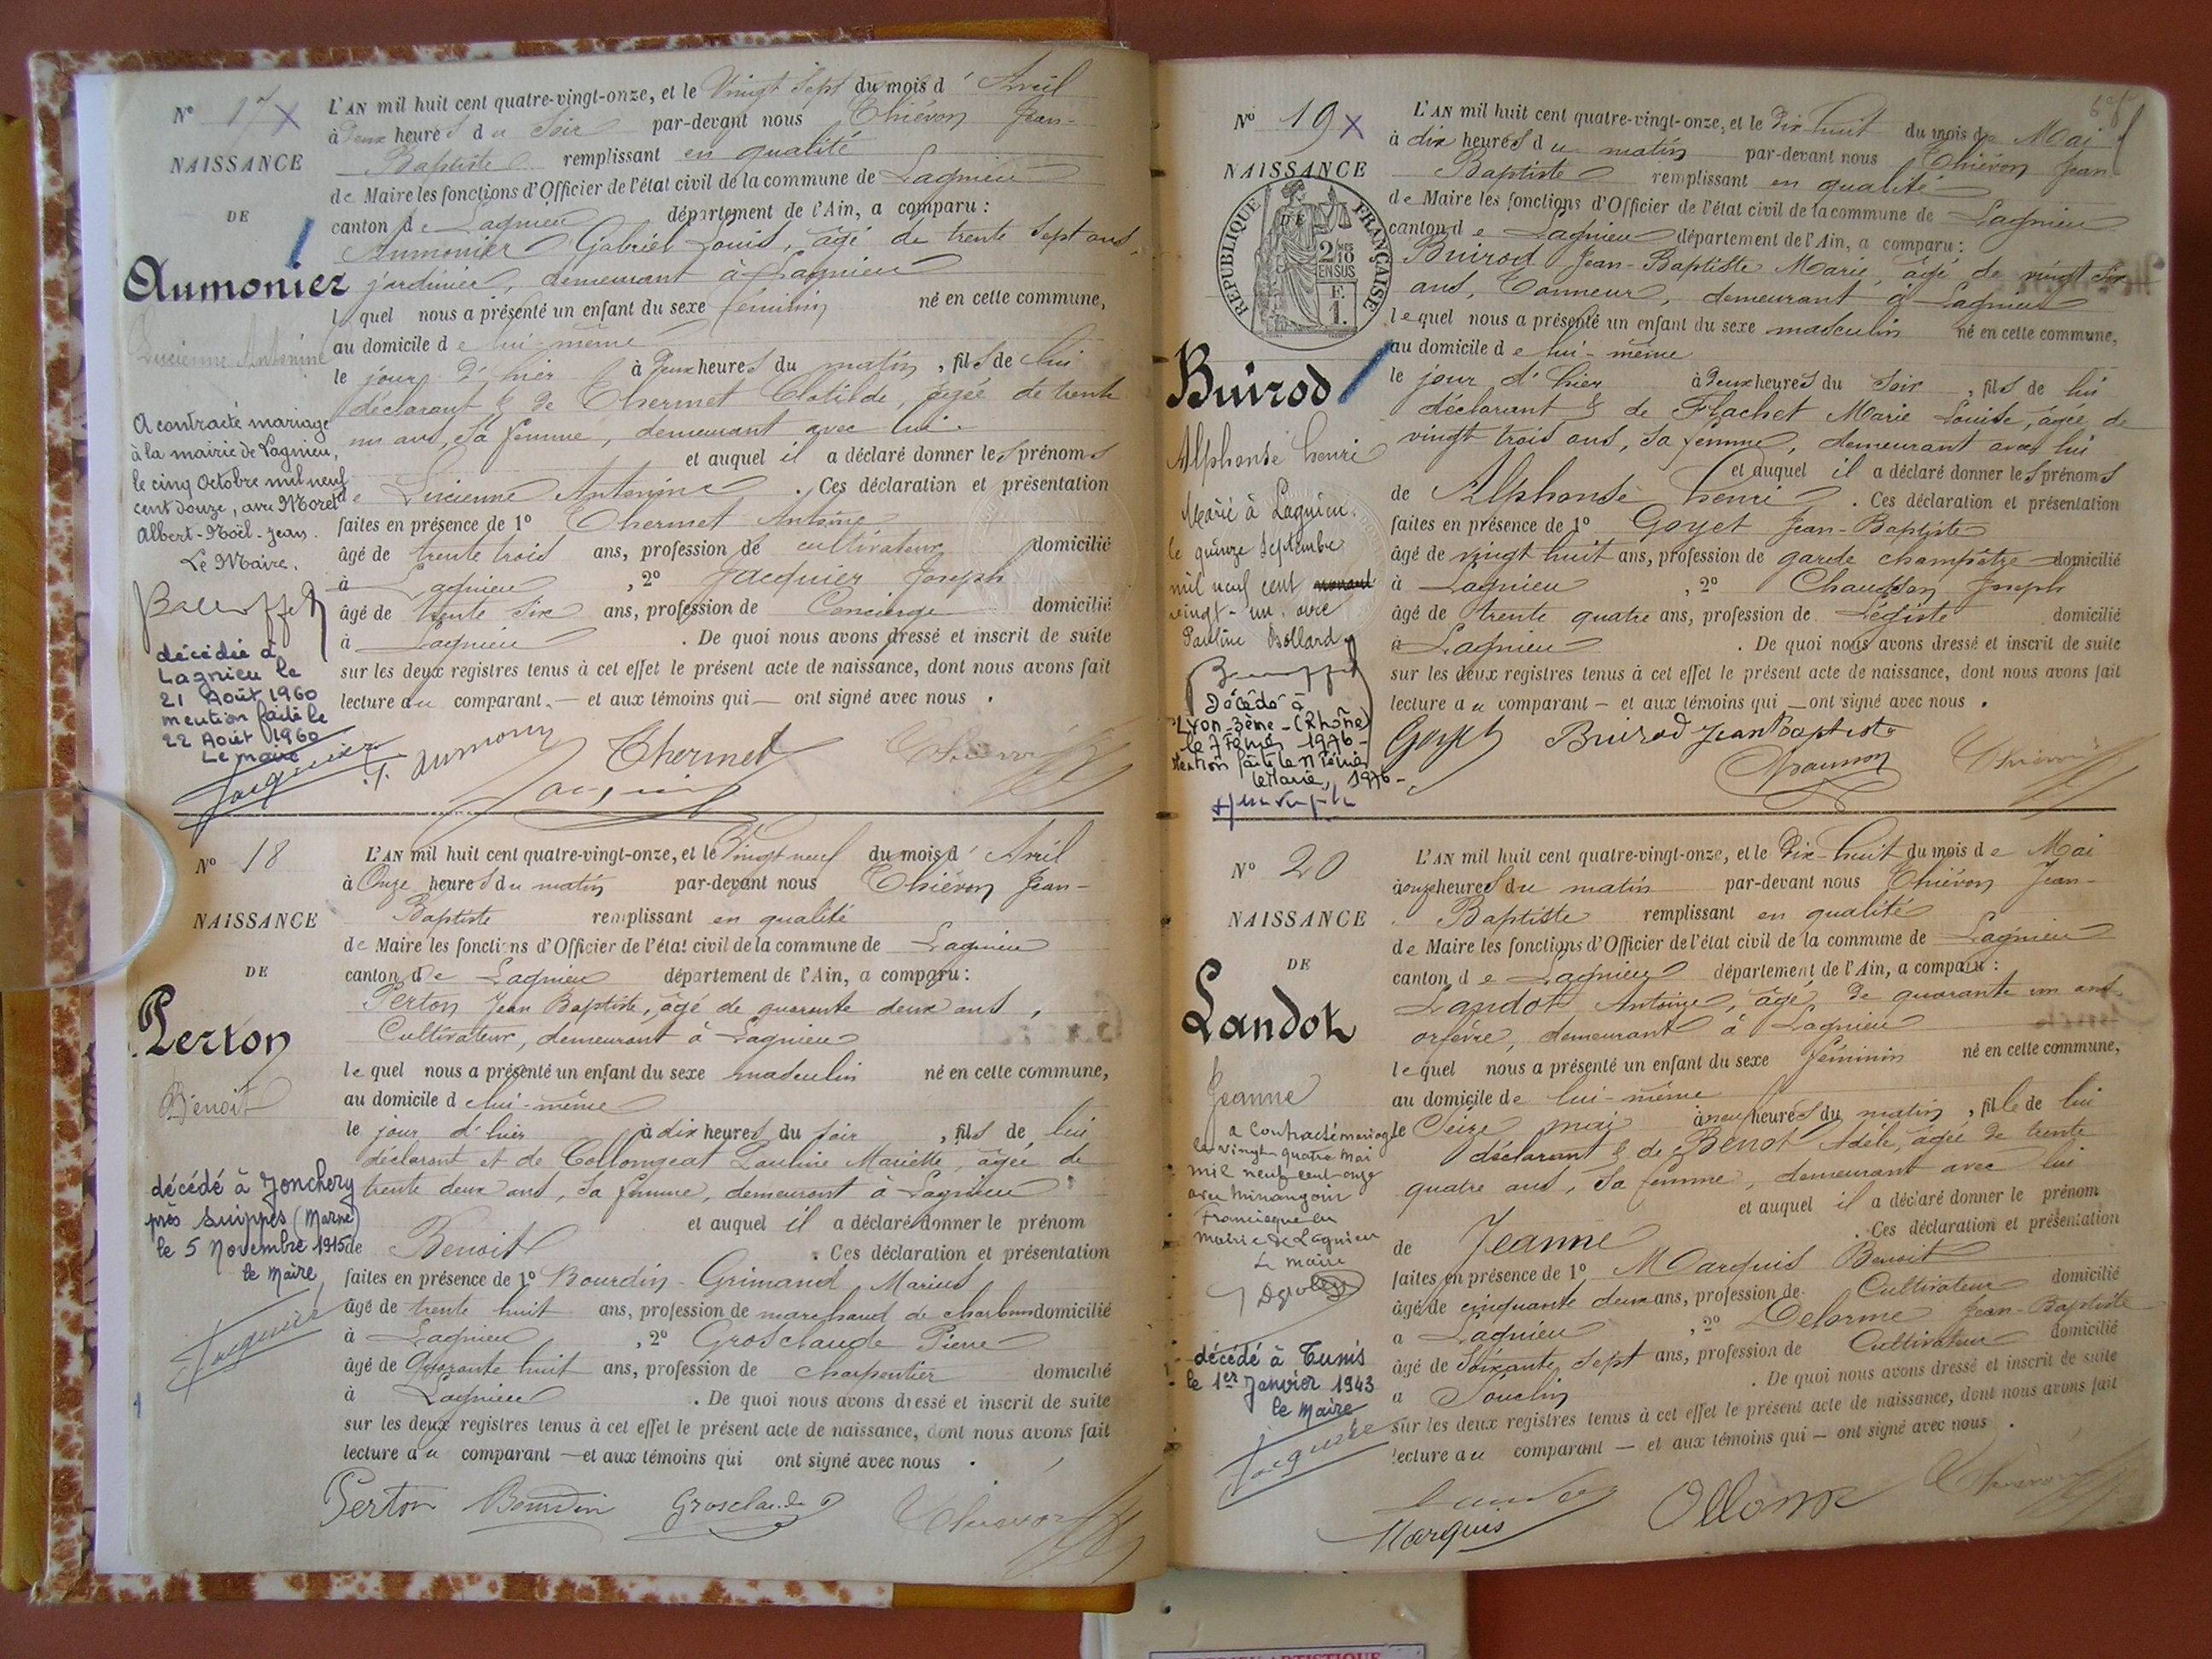 N° 17 X
NAISSANCE
DE
Aumonier
Lucienne Antonine
A contracté mariage
à la mairie de Lagnieu,
le cinq Octobre mil neuf
cent douze, avec Moret
Albert-Noël-Jean.
Le Maire,
décédée à
Lagnieu le
21 Août 1960
mention faite le
22 Août 1960
Le maire
Jacquier
L'AN mil huit cent quatre-vingt-onze, et le Vingt Sept du mois d' Avril
à Deux heures du Soir par-devant nous Thiévon Jean-
Baptiste remplissant en qualité
de Maire les fonctions d'Officier de l'état civil de la commune de Lagnieu
canton de Lagnieu département de l'Ain, a comparu :
Aumonier Gabriel Louis, âgé de trente sept ans,
jardinier, demeurant à Lagnieu
lequel nous a présenté un enfant du sexe féminin né en cette commune,
au domicile de lui-même
le jour d'hier à Deux heures du matin, fils de lui
déclarant & de Thermet Clotilde, âgée de trente
un ans, sa femme, demeurant avec lui.
et auquel il a déclaré donner les prénoms
de Lucienne Antonine. Ces déclaration et présentation
faites en présence de 1° Thermet Antoine
âgé de trente trois ans, profession de cultivateur domicilié
à Lagnieu, 2° Jacquier Joseph
âgé de trente six ans, profession de Concierge domicilié
à Lagnieu. De quoi nous avons dressé et inscrit de suite
sur les deux registres tenus à cet effet le présent acte de naissance, dont nous avons fait
lecture au comparant — et aux témoins qui — ont signé avec nous.
Thermet
N° 18
NAISSANCE
DE
Perton
Benoit
décédé à Jonchery
près Suippes (Marne)
le 5 Novembre 1915
le Maire,
Jacquier
L'AN mil huit cent quatre-vingt-onze, et le Vingt neuf du mois d' Avril
à Onze heures du matin par-devant nous Thiévon Jean-
Baptiste remplissant en qualité
de Maire les fonctions d'Officier de l'état civil de la commune de Lagnieu
canton de Lagnieu département de l'Ain, a comparu :
Perton Jean Baptiste, âgé de quarante deux ans,
Cultivateur, demeurant à Lagnieu
lequel nous a présenté un enfant du sexe masculin né en cette commune,
au domicile de lui-même
le jour d'hier à dix heures du soir, fils de lui
déclarant et de Collongeat Pauline Mariette, âgée de
trente deux ans, sa femme, demeurant à Lagnieu
et auquel il a déclaré donner le prénom
de Benoit. Ces déclaration et présentation
faites en présence de 1° Bourdin-Grimaud Marius
âgé de trente huit ans, profession de marchand de charbon domicilié
à Lagnieu, 2° Grosclaude Pierre
âgé de Quarante huit ans, profession de charpentier domicilié
à Lagnieu. De quoi nous avons dressé et inscrit de suite
sur les deux registres tenus à cet effet le présent acte de naissance, dont nous avons fait
lecture au comparant — et aux témoins qui ont signé avec nous.
Perton Bourdin Grosclaude
N° 19 X
NAISSANCE
RÉPUBLIQUE FRANÇAISE
2/10 EN SUS
1.
Buirod
Alphonse henri
Marié à Lagnieu
le quinze Septembre
mil neuf cent
vingt-un avec
Pauline Bollard
Décédé à
Lyon-3ème-(Rhône)
le 7 Février 1976-
Mention faite le 11 Février
le Maire, 1976-
L'AN mil huit cent quatre-vingt-onze, et le Dix huit du mois de Mai
à dix heures du matin par-devant nous Thiévon Jean
Baptiste remplissant en qualité
de Maire les fonctions d'Officier de l'état civil de la commune de Lagnieu
canton de Lagnieu département de l'Ain, a comparu :
Buirod Jean-Baptiste Marie, âgé de vingt six
ans, Tanneur, demeurant à Lagnieu
lequel nous a présenté un enfant du sexe masculin né en cette commune,
au domicile de lui-même
le jour d'hier à Deux heures du Soir, fils de lui
déclarant & de Flachet Marie Louise, âgée de
vingt trois ans, sa femme, demeurant avec lui
et auquel il a déclaré donner les prénoms
de Alphonse henri. Ces déclaration et présentation
faites en présence de 1° Goyet Jean-Baptiste
âgé de vingt huit ans, profession de garde champêtre domicilié
à Lagnieu, 2° Joseph
âgé de trente quatre ans, profession de domicilié
à Lagnieu. De quoi nous avons dressé et inscrit de suite
sur les deux registres tenus à cet effet le présent acte de naissance, dont nous avons fait
lecture au comparant — et aux témoins qui — ont signé avec nous.
Goyet Buirod Jean Baptiste
N° 20
NAISSANCE
DE
Landot
Jeanne
a contracté mariage
le vingt-quatre mai
mil neuf cent onze
avec
en
mairie de Lagnieu
Le maire
décédé à Tunis
le 1er Janvier 1943
le Maire
Jacquier
L'AN mil huit cent quatre-vingt-onze, et le Dix-huit du mois de Mai
à onze heures du matin par-devant nous Thiévon Jean-
Baptiste remplissant en qualité
de Maire les fonctions d'Officier de l'état civil de la commune de Lagnieu
canton de Lagnieu département de l'Ain, a comparu :
Landot Antoine, âgé de quarante un ans
orfèvre, demeurant à Lagnieu
lequel nous a présenté un enfant du sexe féminin né en cette commune,
au domicile de lui-même
le Seize mai à neuf heures du matin, fille de lui
déclarant & de Benot Adèle, âgée de trente
quatre ans, sa femme, demeurant avec lui
et auquel il a déclaré donner le prénom
de Jeanne. Ces déclaration et présentation
faites en présence de 1° Marquis Benoit
âgé de cinquante deux ans, profession de Cultivateur domicilié
à Lagnieu, 2° Delorme Jean-Baptiste
âgé de Soixante Sept ans, profession de Cultivateur domicilié
à Souclin. De quoi nous avons dressé et inscrit de suite
sur les deux registres tenus à cet effet le présent acte de naissance, dont nous avons fait
lecture au comparant — et aux témoins qui — ont signé avec nous.
Marquis